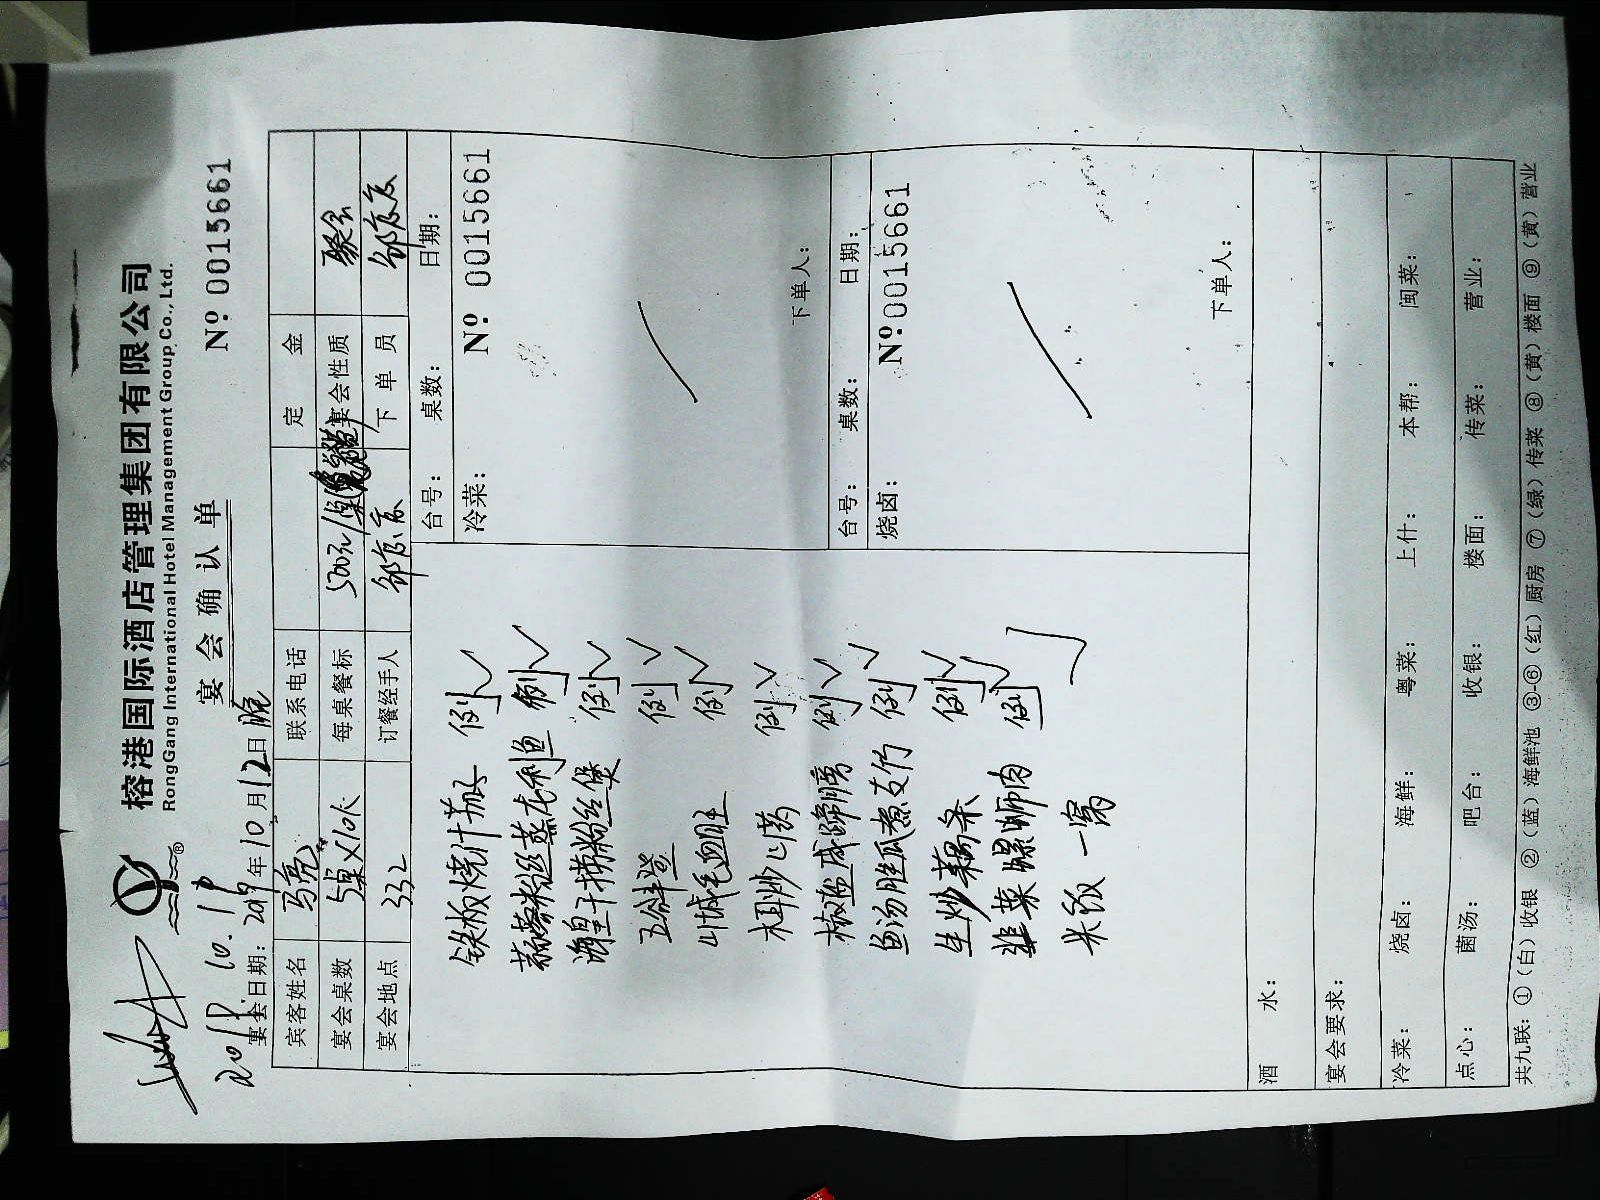 榕港国际酒店管理集团有限公司
RongGang International Hotel Management Group Co., Ltd.
宴会确认单
Nº 0015661
宴会日期：2019年10月12日晚
宾客姓名 马亮 联系电话 定金
宴会桌数 5桌×10人 每桌餐标 500元/桌 宴会性质 聚会
宴会地点 332 订餐经手人 下单员
铁板烧汁茄子 例
蒜蓉粉丝蒸龙利鱼 例
海皇干捞粉丝煲 例
五谷丰登 例
山城毛血旺 例
木耳炒山药 例
椒盐咸蹄膀 例
鱼汤丝瓜煮支竹 例
生炒藕条 例
韭菜螺蛳肉 例
米饭一窝
台号： 桌数： 日期：
冷菜： Nº 0015661
下单人：
台号： 桌数： 日期：
烧卤： Nº 0015661
下单人：
酒水：
宴会要求：
冷菜： 烧卤： 海鲜： 粤菜： 上什： 本帮： 闽菜：
点心： 菌汤： 吧台： 收银： 楼面： 传菜： 营业：
共九联：①（白）收银 ②（蓝）海鲜池 ③-⑥（红）厨房 ⑦（绿）传菜 ⑧（黄）楼面 ⑨（黄）营业